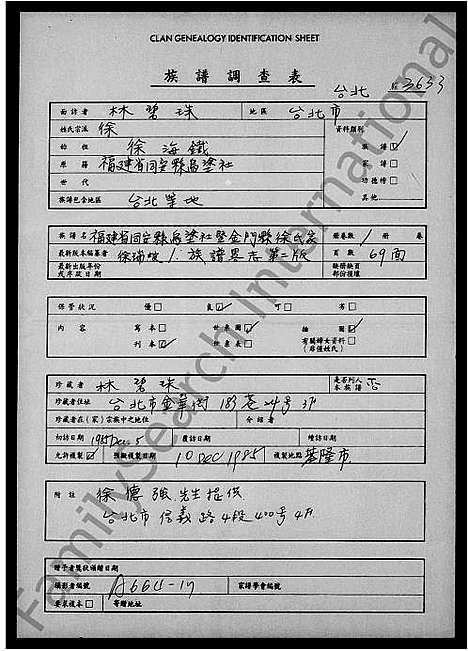 CLAN GENEALOGY IDENTIFICATION SHEET
族譜調查表
台北 3633
面訪者 林碧珠 地區 台北市
姓氏宗派 徐 資料類別
始祖 徐海鐵 族譜
原籍 福建省同安縣烏塗社 家譜
世代 功德榜
族譜包含地區 台北等地 其他
族譜名 福建省同安縣烏塗社暨金門縣徐氏宗 冊卷數 1 冊 卷
最新版本編纂者 徐瑞 1. 族譜畧志第二版 頁數 69面
最新出版年份或序跋日期 缺冊缺頁部份損壞
保管狀況 優 良 可 劣
內容 寫本 世系圖 插圖
刊本 世系表 有關婦女資料(名僅姓氏)
珍藏者 林碧珠 是否列入本族譜 否
珍藏者住址 台北市金華街183巷24号3F
珍藏者在(家)宗族中之地位 介紹者
初訪日期 1985 Dec. 5 覆訪日期 續訪日期
允許複製 預擬複製日期 10 DEC 1985 複製地點 基隆市
附註 徐德 先生提供
台北市信義路4段400号4F
贈予者獎狀頒贈日期
攝影者編號 A664-17 家譜學會編號
要求複本 寄贈地址
FamilySearch International